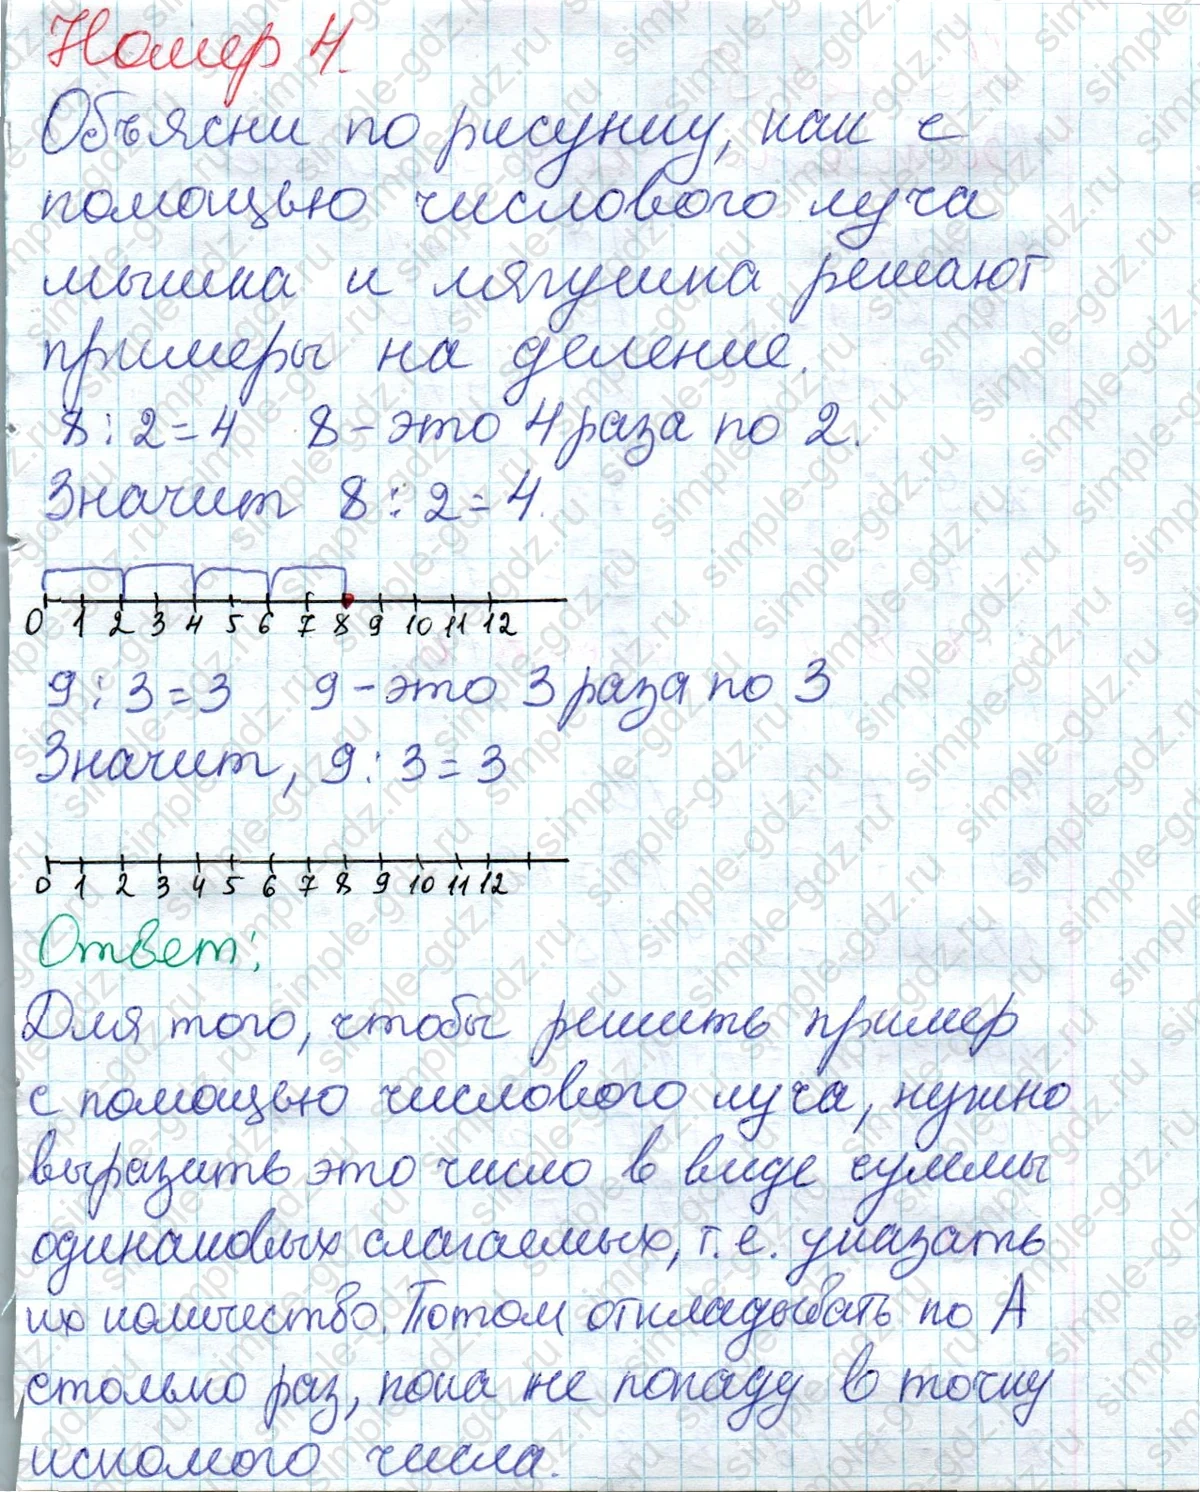 Номер 4.
Объясни по рисунку, как с
помощью числового луча
мышка и лягушка решают
примеры на деление.
8 : 2 = 4 8 - это 4 раза по 2.
Значит 8 : 2 = 4.
0 1 2 3 4 5 6 7 8 9 10 11 12
9 : 3 = 3 9 - это 3 раза по 3
Значит, 9 : 3 = 3
0 1 2 3 4 5 6 7 8 9 10 11 12
Ответ:
Для того, чтобы решить пример
с помощью числового луча, нужно
выразить это число в виде суммы
одинаковых слагаемых, т.е. указать
их количество. Потом откладывать по А
столько раз, пока не попаду в точку
искомого числа.
simple-gdz.ru